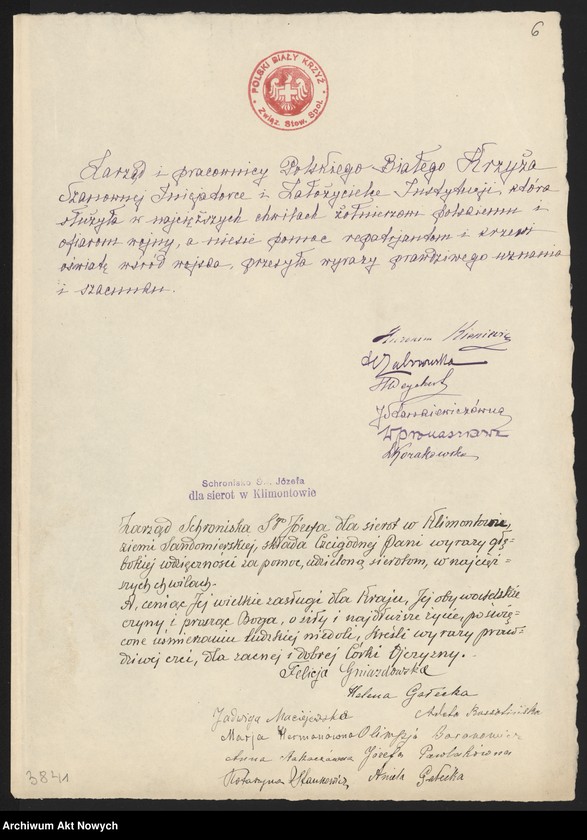 6
POLSKI BIAŁY KRZYŻ
Związ. Stow. Społ.
Zarząd i pracownicy Polskiego Białego Krzyża
Szanownej Inicjatorce i Założycielce Instytucji, która
służyła w najcięższych chwilach żołnierzom polskiemu i
ofiarom wojny, a niesie pomoc repatrjantom i krzewi
oświatę wśród wojska, przesyła wyrazy prawdziwego uznania
i szacunku.
Kieniewicz
Schronisko Św. Józefa
dla sierot w Klimontowie
Zarząd Schroniska Sgo Józefa dla sierot w Klimontowie,
ziemi Sandomierskiej, składa Czcigodnej Pani wyrazy głę-
bokiej wdzięczności za pomoc, udzieloną sierotom, w najcięż-
szych chwilach.
A, ceniąc Jej wielkie zasługi dla Kraju, Jej obywatelskie
czyny i prosząc Boga, o siły i najdłuższe życie, poświę-
cone uśmierzaniu ludzkiej niedoli, kreśli wyrazy praw-
dziwej czci, dla zacnej i dobrej Córki Ojczyzny.
Felicja Gniazdowska
Helena Gałecka
Jadwiga Maciejewska Adela
Marja Hermanowna Olimpja Baranowicz
Anna Józefa Pawlakówna
Katarzyna Aniela Gałecka
3841
Archiwum Akt Nowych